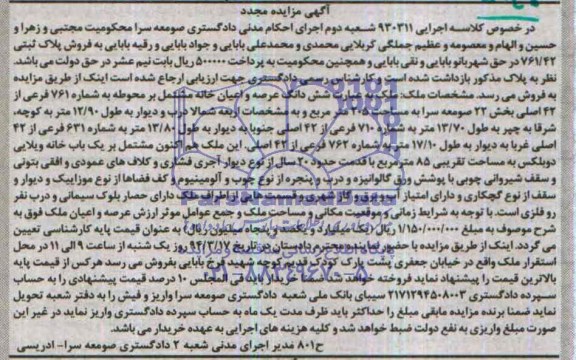 آگهی مزایده مجدد
در خصوص کلاسه اجرایی ۹۳۰۳۱۱ شعبه دوم اجرای احکام مدنی دادگستری صومعه سرا محکومیت مجتبی و زهرا و
حسین و الهام و معصومه و عظیم جملگی کربلایی محمدی و محمدعلی بابایی و جواد بابایی و رقیه بابایی به فروش پلاک ثبتی
۷۶۱/۴۲ در حق شهربانو بابایی و نقی بابایی و همچنین محکومیت به پرداخت ۵۰۰۰۰۰ ریال بابت نیم عشر در حق دولت می باشد.
نظر به پلاک مذکور بازداشت شده است و کارشناس رسمی دادگستری جهت ارزیابی ارجاع شده است اینک از طریق مزایده
به فروش می رسد. مشخصات ملک: شش دانگ عرصه و اعیان خانه مشتمل بر محوطه به شماره ۷۶۱ فرعی از
۴۲ اصلی بخش ۲۲ صومعه سرا به مساحت متر مربع و به مشخصات اربعه شمالا درب و دیوار به طول ۱۲/۹۰ متر به کوچه،
شرقا به چپر به طول ۱۳/۷۰ متر به شماره ۷۱۰ فرعی از ۴۲ اصلی جنوبا به دیوار به طول ۱۳/۸۰ متر به شماره ۶۳۱ فرعی از ۴۲
اصلی غربا به دیوار به طول ۱۷/۱۰ متر به شماره ۷۶۲ فرعی از ۴۲ اصلی. این ملک هم اکنون مشتمل بر یک باب خانه ویلایی
دوبلکس به مساحت تقریبی ۸۵ متر مربع با قدمت حدود ۲۰ سال از نوع دیوار آجری فشاری و کلاف های عمودی و افقی بتونی
و سقف شیروانی چوبی با پوشش ورق گالوانیزه و درب و پنجره از نوع چوب و آلومینیوم و کف فضاها از نوع موزاییک و دیوار و
سقف از نوع گچکاری و دارای امتیاز آب و برق و گاز شهری و قسمت هایی از اطراف ملک دارای حصار بلوک سیمانی و درب نفر
رو فلزی است. با توجه به شرایط زمانی و موقعیت مکانی و مساحت ملک و جمع عوامل موثر ارزش عرصه و اعیان ملک فوق به
شرح موصوف به مبلغ ۱/۱۵۰/۰۰۰/۰۰۰ ریال (یک میلیارد و یکصد و پنجاه میلیون ریال) به عنوان قیمت پایه کارشناسی تعیین
می گردد. اینک از طریق مزایده با حضور نماینده محترم دادستان در تاریخ ۹۴/۳/۱۷ روز یک شنبه از ساعت ۹ الی ۱۱ در محل
استقرار ملک واقع در خیابان جعفری پشت پارک کودک قدیم کوچه شهید فرخ بابایی بفروش می رسد هرکس از قیمت پایه
بالاترین قیمت را پیشنهاد نماید فروخته خواهد شد. خریدار باید فی المجلس ۱۰ درصد قیمت پیشنهادی را به حساب
سپرده دادگستری ۲۱۷۱۲۹۴۵۰۸۰۰۳ سیبای بانک ملی شعبه دادگستری صومعه سرا واریز و فیش را به دفتر شعبه تحویل
نماید ضمنا برنده مزایده مابقی مبلغ را حداکثر باید ظرف مدت یک ماه به حساب سپرده دادگستری واریز نماید در غیر این
صورت مبلغ واریزی به نفع دولت ضبط خواهد شد و کلیه هزینه های اجرایی به عهده خریدار می باشد.
ح۸۰۱ مدیر اجرای مدنی شعبه ۲ دادگستری صومعه سرا- ادریسی